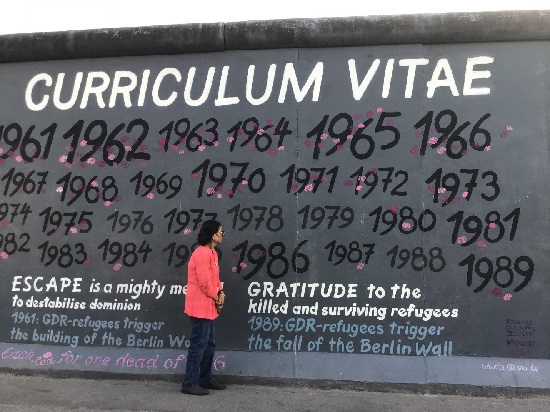 CURRICULUM VITAE
1961 1962 1963 1964 1965 1966
1967 1968 1969 1970 1971 1972 1973
974 1975 1976 1977 1978 1979 1980 1981
982 1983 1984 1986 1987 1988 1989
ESCAPE is a mighty me
to destabilise dominion
1961: GDR-refugees trigger
the building of the Berlin Wa
GRATITUDE to the
killed and surviving refugees
1989: GDR-refugees trigger
the fall of the Berlin Wall
each for one dead of